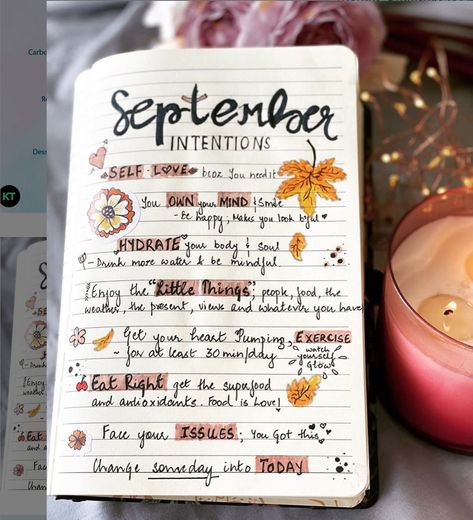 September
INTENTIONS
SELF LOVE bcoz You need it
You OWN your MIND & Smile
- Be happy; Makes you look b'ful
HYDRATE your body & soul
- Drink more water & be mindful
Enjoy the "Little Things"; people, food, the
weather, the present, views and whatever you have
Get your heart Pumping, EXERCISE
~ for at least 30 min/day
watch
yourself
Glow
Eat Right get the superfood
and antioxidants. Food is Love!
Face your ISSUES; You Got this
Change someday into TODAY
Carbo
Re
Dess
KT